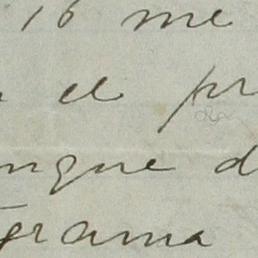 16 me
el pr
unque d
grama